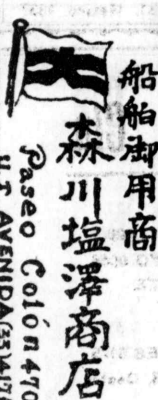 船舶御用商
森川塩澤商店
Paseo Colón 470
U.T. AVENIDA (33)